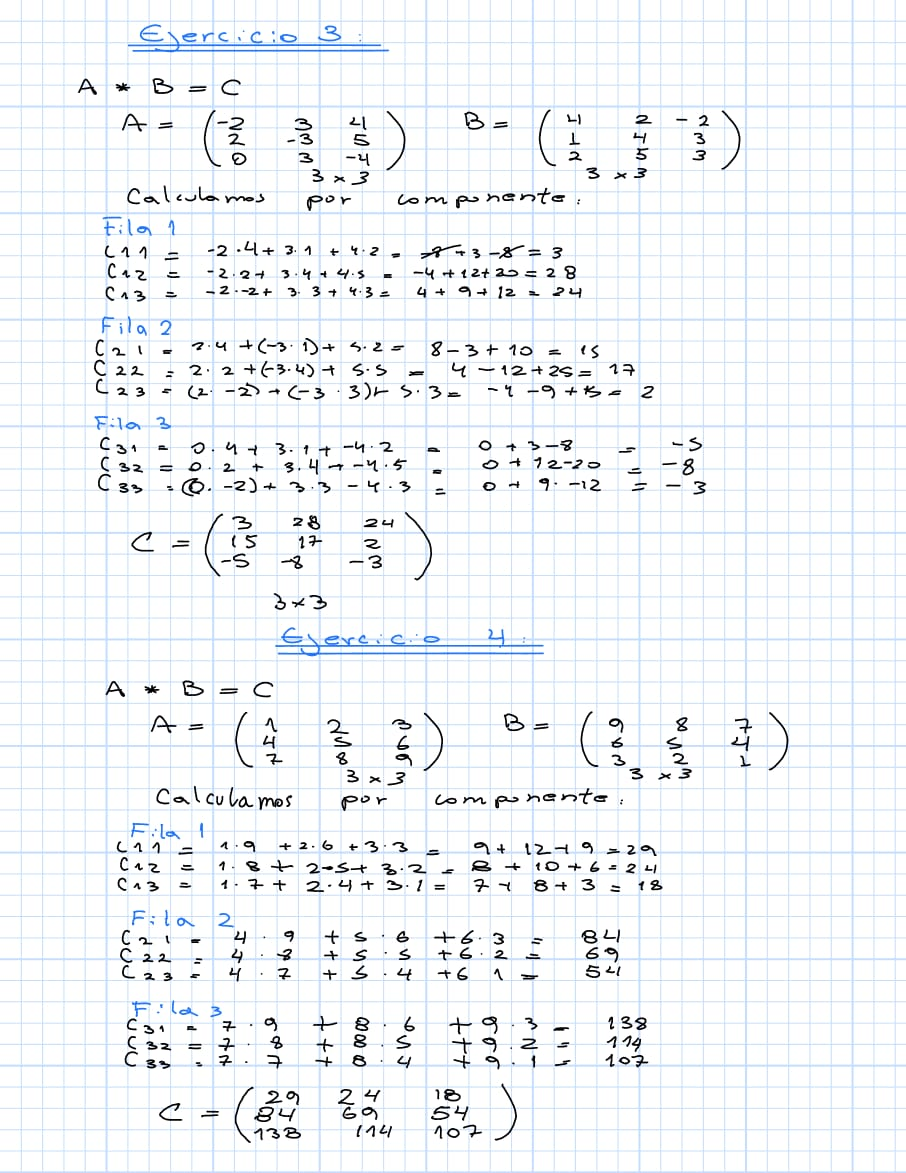 Ejercicio 3:
A * B = C
A = (-2 3 4
2 -3 5
0 3 -4)
3 x 3
B = (4 2 -2
1 4 3
2 5 3)
3 x 3
Calculamos por componente:
Fila 1
C11 = -2·4 + 3·1 + 4·2 = -8 + 3 - 8 = 3
C12 = -2·2 + 3·4 + 4·5 = -4 + 12 + 20 = 28
C13 = -2·-2 + 3·3 + 4·3 = 4 + 9 + 12 = 24
Fila 2
C21 = 2·4 + (-3·1) + 5·2 = 8 - 3 + 10 = 15
C22 = 2·2 + (-3·4) + 5·5 = 4 - 12 + 25 = 17
C23 = (2·-2) + (-3·3) + 5·3 = -4 - 9 + 15 = 2
Fila 3
C31 = 0·4 + 3·1 + -4·2 = 0 + 3 - 8 = -5
C32 = 0·2 + 3·4 + -4·5 = 0 + 12 - 20 = -8
C33 = (0·-2) + 3·3 - 4·3 = 0 + 9·-12 = -3
C = (3 28 24
15 17 2
-5 -8 -3)
3x3
Ejercicio 4:
A * B = C
A = (1 2 3
4 5 6
7 8 9)
3 x 3
B = (9 8 7
6 5 4
3 2 1)
3 x 3
Calculamos por componente:
Fila 1
C11 = 1·9 + 2·6 + 3·3 = 9 + 12 + 9 = 29
C12 = 1·8 + 2·5 + 3·2 = 8 + 10 + 6 = 24
C13 = 1·7 + 2·4 + 3·1 = 7 + 8 + 3 = 18
Fila 2
C21 = 4·9 + 5·6 + 6·3 = 84
C22 = 4·8 + 5·5 + 6·2 = 69
C23 = 4·7 + 5·4 + 6 1 = 54
Fila 3
C31 = 7·9 + 8·6 + 9·3 = 138
C32 = 7·8 + 8·5 + 9·2 = 114
C33 = 7·7 + 8·4 + 9·1 = 107
C = (29 24 18
84 69 54
138 114 107)